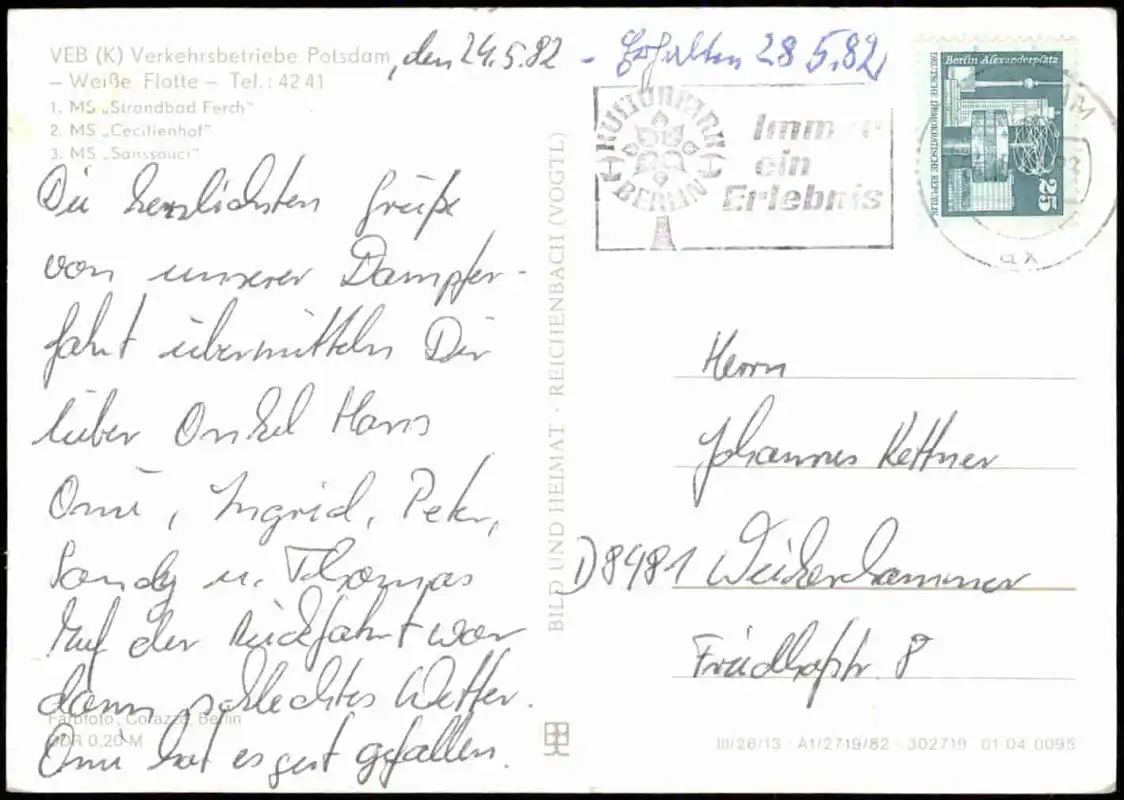 VEB (K) Verkehrsbetriebe Potsdam, den 24.5.82 - Erhalten 28 5.82
– Weiße Flotte – Tel.: 42 41
1. MS „Strandbad Ferch"
2. MS „Cecilienhof"
3. MS „Sanssouci"
Die herzlichsten Grüße
von unserer Dampfer-
fahrt übermitteln Dir
lieber Onkel Hans
Omi, Ingrid, Peter,
Sandy u. Thomas
Auf der Rückfahrt war
dann schlechtes Wetter.
Omi hat es gut gefallen.
Farbfoto, Corazza, Berlin
DDR 0,20 M
BILD UND HEIMAT · REICHENBACH (VOGTL)
KULTURPARK
BERLIN
Immer
ein
Erlebnis
Berlin Alexanderplatz
DEUTSCHE DEMOKRATISCHE REPUBLIK
25
ax
Herrn
Johannes Kettner
D 8481 Weiherhammer
Friedhofstr. 8
III/26/13 · A1/2719/82 · 302719 01 04 0095